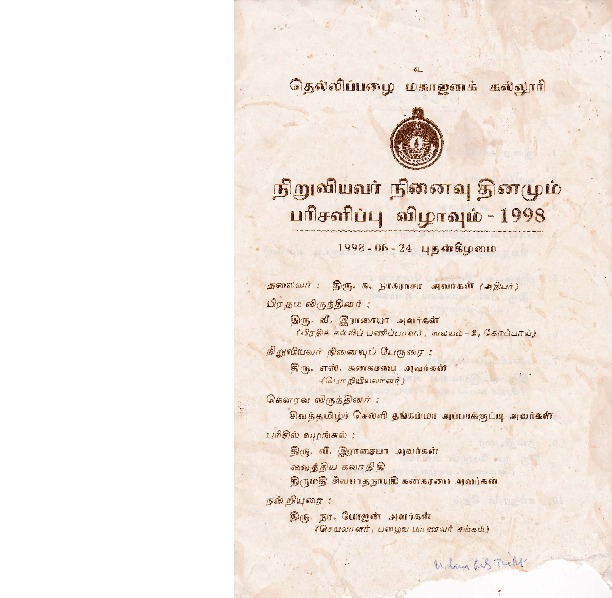 உ
தெல்லிப்பழை மகாஜனக் கல்லூரி
நிறுவியவர் நினைவு தினமும்
பரிசளிப்பு விழாவும் - 1998
1998 - 06 - 24 புதன்கிழமை
தலைவர் : திரு. க. நாகராசா அவர்கள் (அதிபர்)
பிரதம விருந்தினர் :
திரு. வீ. இராசையா அவர்கள்
(பிரதிக் கல்விப் பணிப்பாளர், வலயம் - 2, கோப்பாய்)
நிறுவியவர் நினைவுப் பேருரை :
திரு. எஸ். கனகசபை அவர்கள்
(பொறியியலாளர்)
கௌரவ விருந்தினர் :
சிவத்தமிழ்ச் செல்வி தங்கம்மா அப்பாக்குட்டி அவர்கள்
பரிசில் வழங்கல் :
திரு. வீ. இராசையா அவர்கள்
வைத்திய கலாநிதி
திருமதி சிவபாதநாயகி கனகசபை அவர்கள்
நன்றியுரை :
திரு. நா. மோஜன் அவர்கள்
(செயலாளர், பழைய மாணவர் சங்கம்)